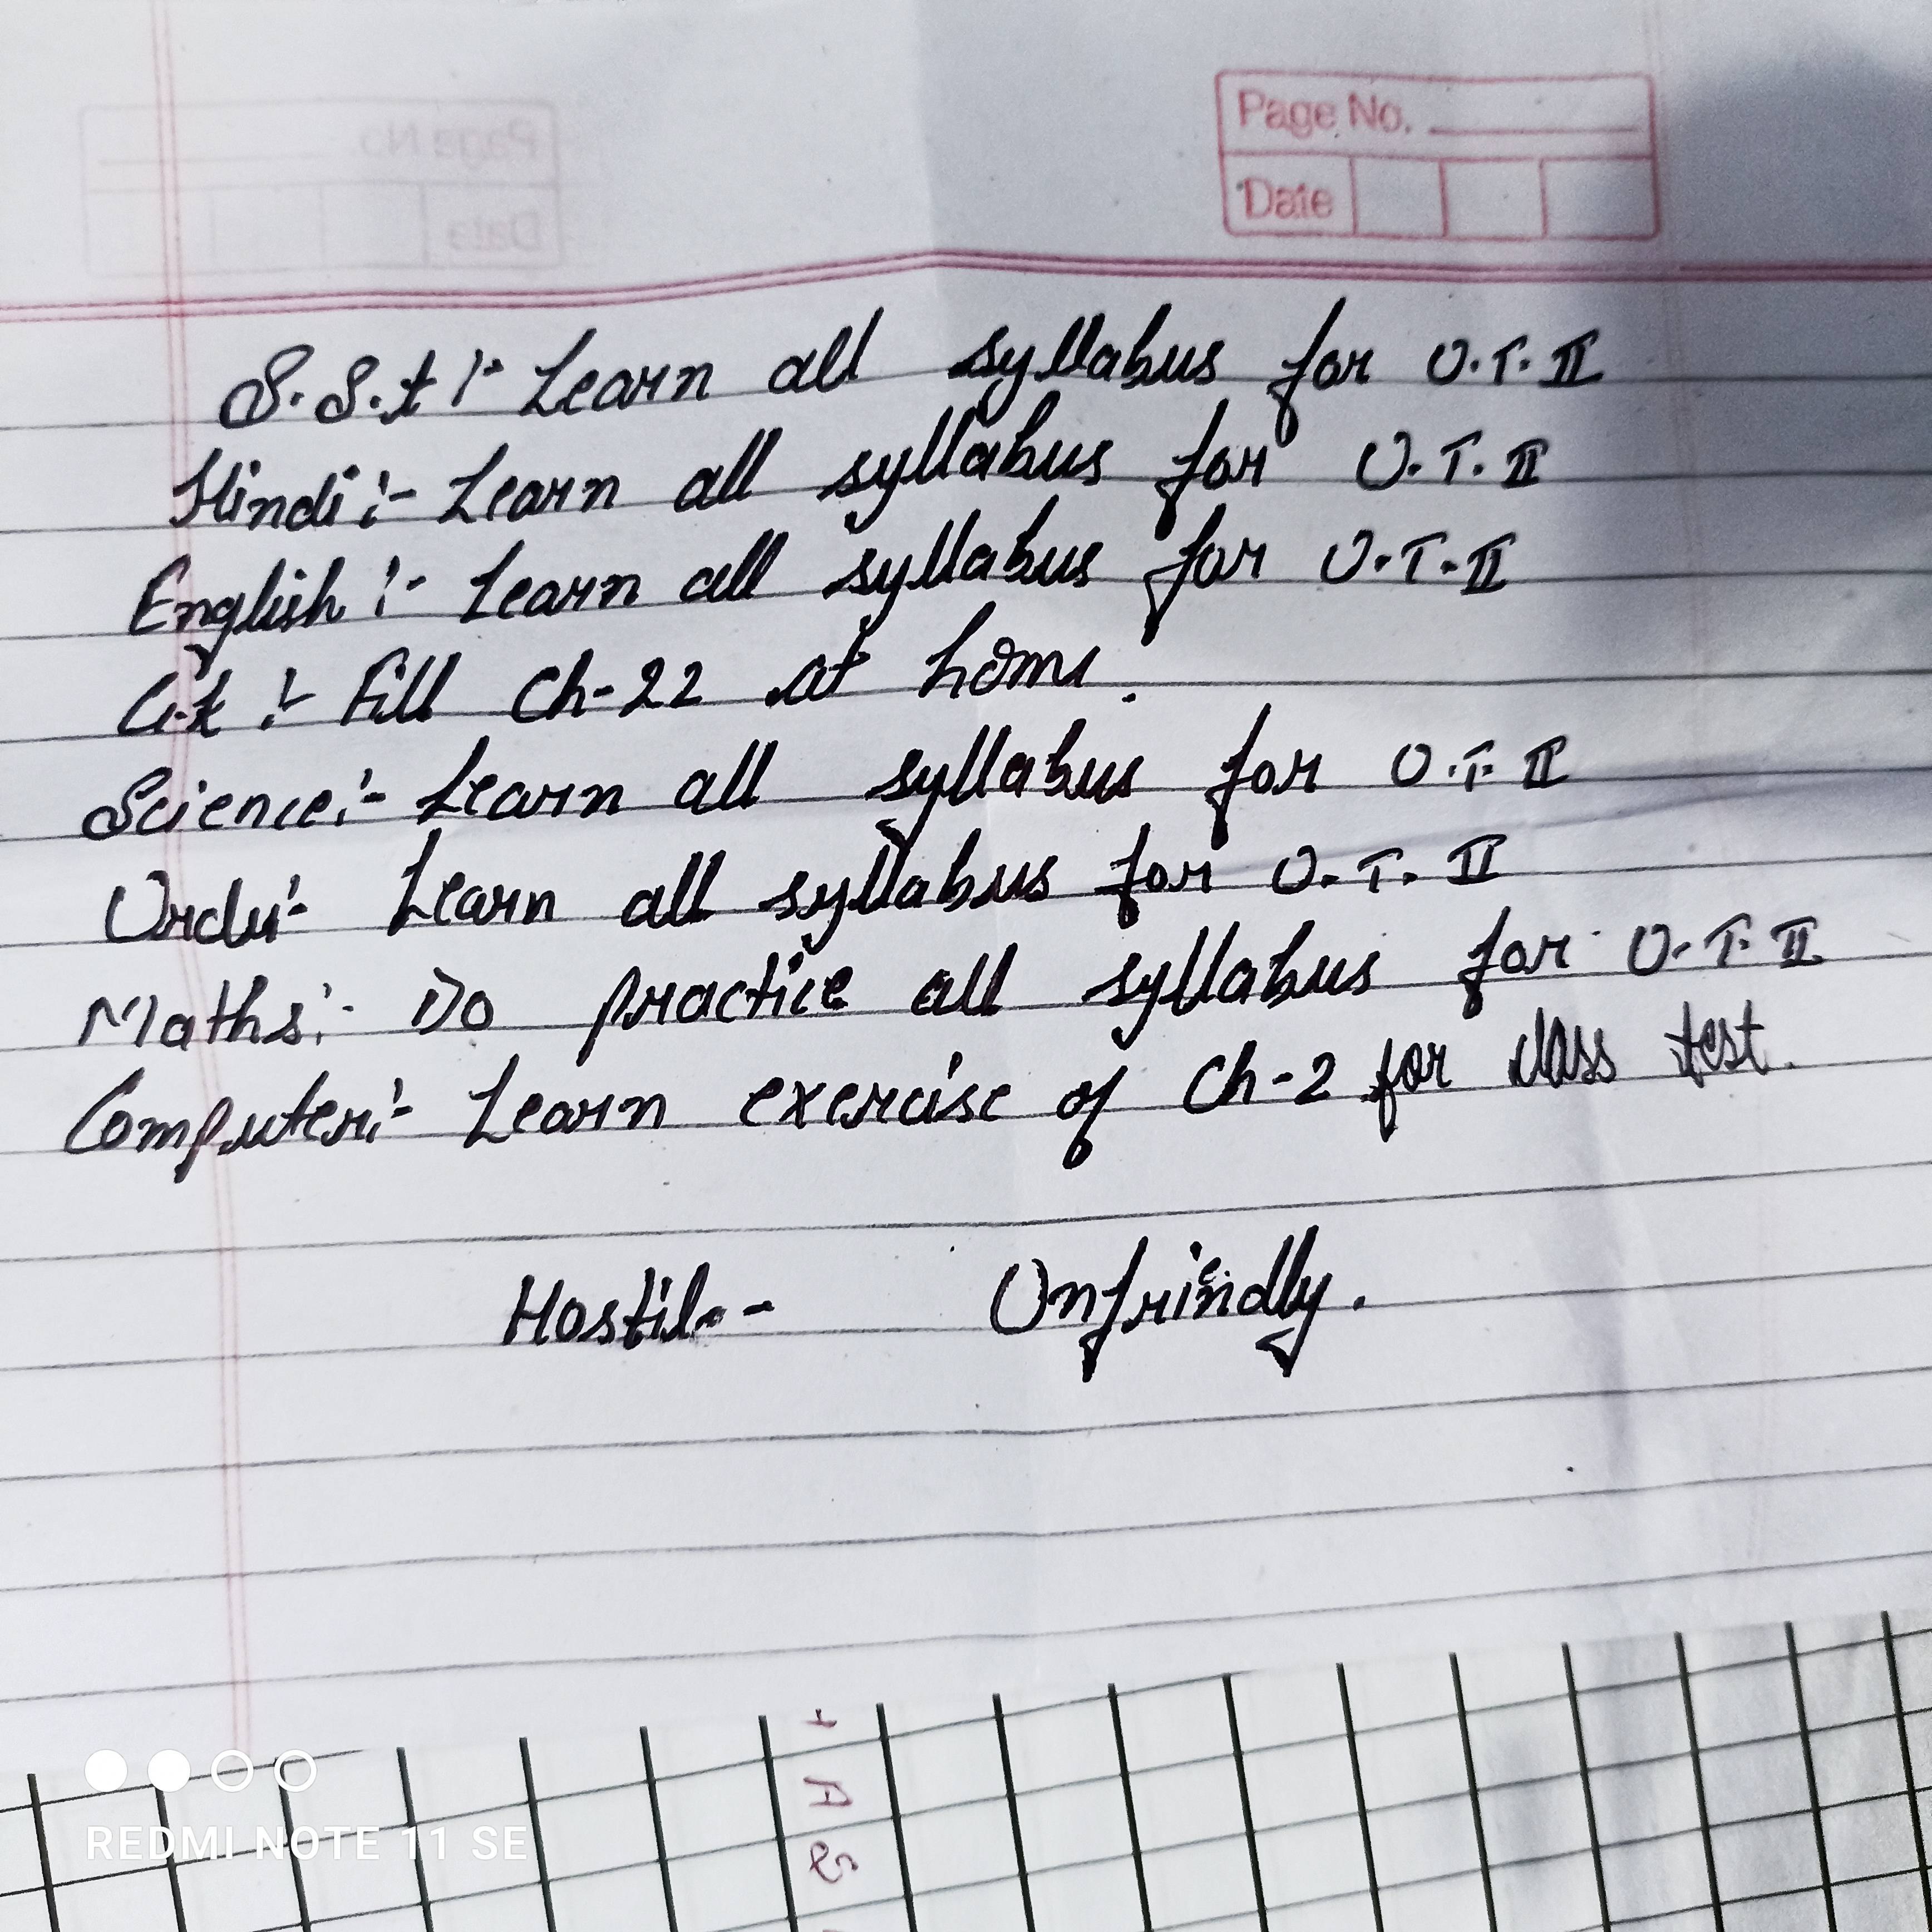 Page No.
Date
S.S.t :- Learn all syllabus for U.T. II
Hindi :- Learn all syllabus for U.T. II
English :- Learn all syllabus for U.T. II
G.k :- Fill Ch-22 at home.
Science :- Learn all syllabus for U.T. II
Urdu :- Learn all syllabus for U.T. II
Maths :- Do practice all syllabus for U.T. II
Computer :- Learn exercise of Ch-2 for class test.
Hostile - Unfriendly.
REDMI NOTE 11 SE